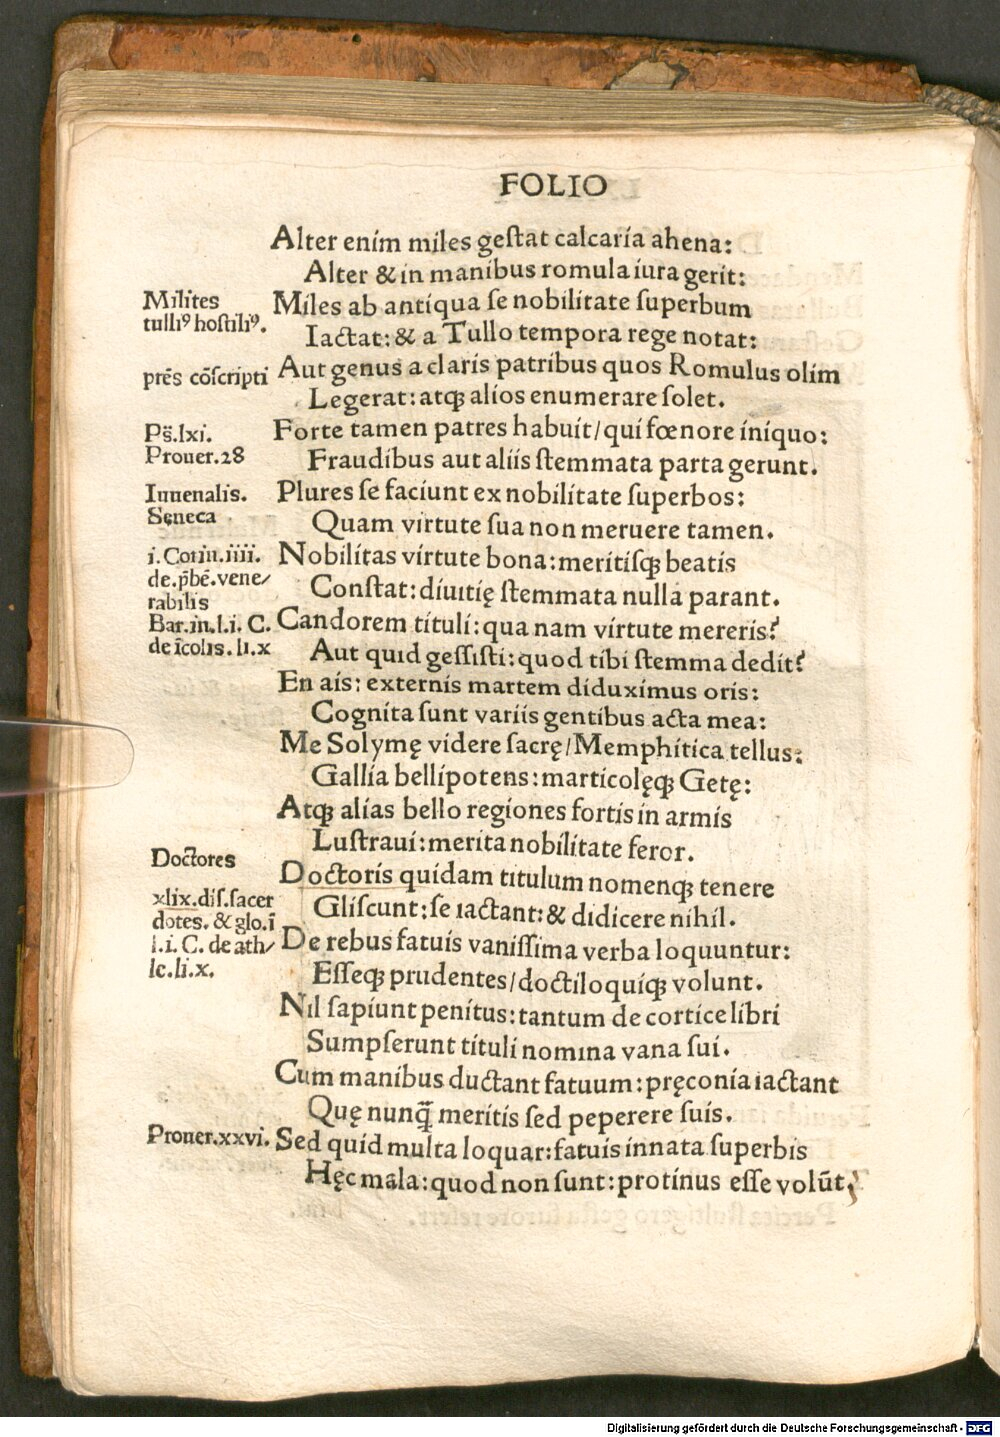 FOLIO
Alter enim miles geſtat calcaria ahena:
Alter & in manibus romula iura gerit:
Milites
tulliꝰ hoſtiliꝰ.
Miles ab antiqua ſe nobilitate ſuperbum
Iactat: & a Tullo tempora rege notat:
prēs cōſcripti
Aut genus a claris patribus quos Romulus olim
Legerat: atqꝫ alios enumerare ſolet.
Ps̄.lxi.
Prouer.28
Forte tamen patres habuit/qui fœnore iniquo:
Fraudibus aut aliis ſtemmata parta gerunt.
Iuuenalis.
Seneca
Plures ſe faciunt ex nobilitate ſuperbos:
Quam virtute ſua non meruere tamen.
i.Corin.iiii.
de.p̄bē.vene/
rabilis
Nobilitas virtute bona: meritiſqꝫ beatis
Conſtat: diuitię ſtemmata nulla parant.
Bar.in.l.i. C.
de īcolis. li.x
Candorem tituli: qua nam virtute mereris?
Aut quid geſſiſti: quod tibi ſtemma dedit?
En ais: externis martem diduximus oris:
Cognita ſunt variis gentibus acta mea:
Me Solymę videre ſacrę/Memphitica tellus:
Gallia bellipotens: marticolęqꝫ Getę:
Atqꝫ alias bello regiones fortis in armis
Luſtraui: merita nobilitate feror.
Doctores
Doctoris quidam titulum nomenqꝫ tenere
Gliſcunt: ſe iactant: & didicere nihil.
xlix.diſ.ſacer
dotes. & glo.ī
l.i. C. de ath/
le.li.x.
De rebus fatuis vaniſſima verba loquuntur:
Eſſeqꝫ prudentes/doctiloquiqꝫ volunt.
Nil ſapiunt penitus: tantum de cortice libri
Sumpſerunt tituli nomina vana ſui.
Cum manibus ductant fatuum: pręconia iactant
Quę nunq̄ meritis ſed peperere ſuis.
Prouer.xxvi.
Sed quid multa loquar: fatuis innata ſuperbis
Hęc mala: quod non ſunt: protinus eſſe volūt,
Digitalisierung gefördert durch die Deutsche Forschungsgemeinschaft - DFG